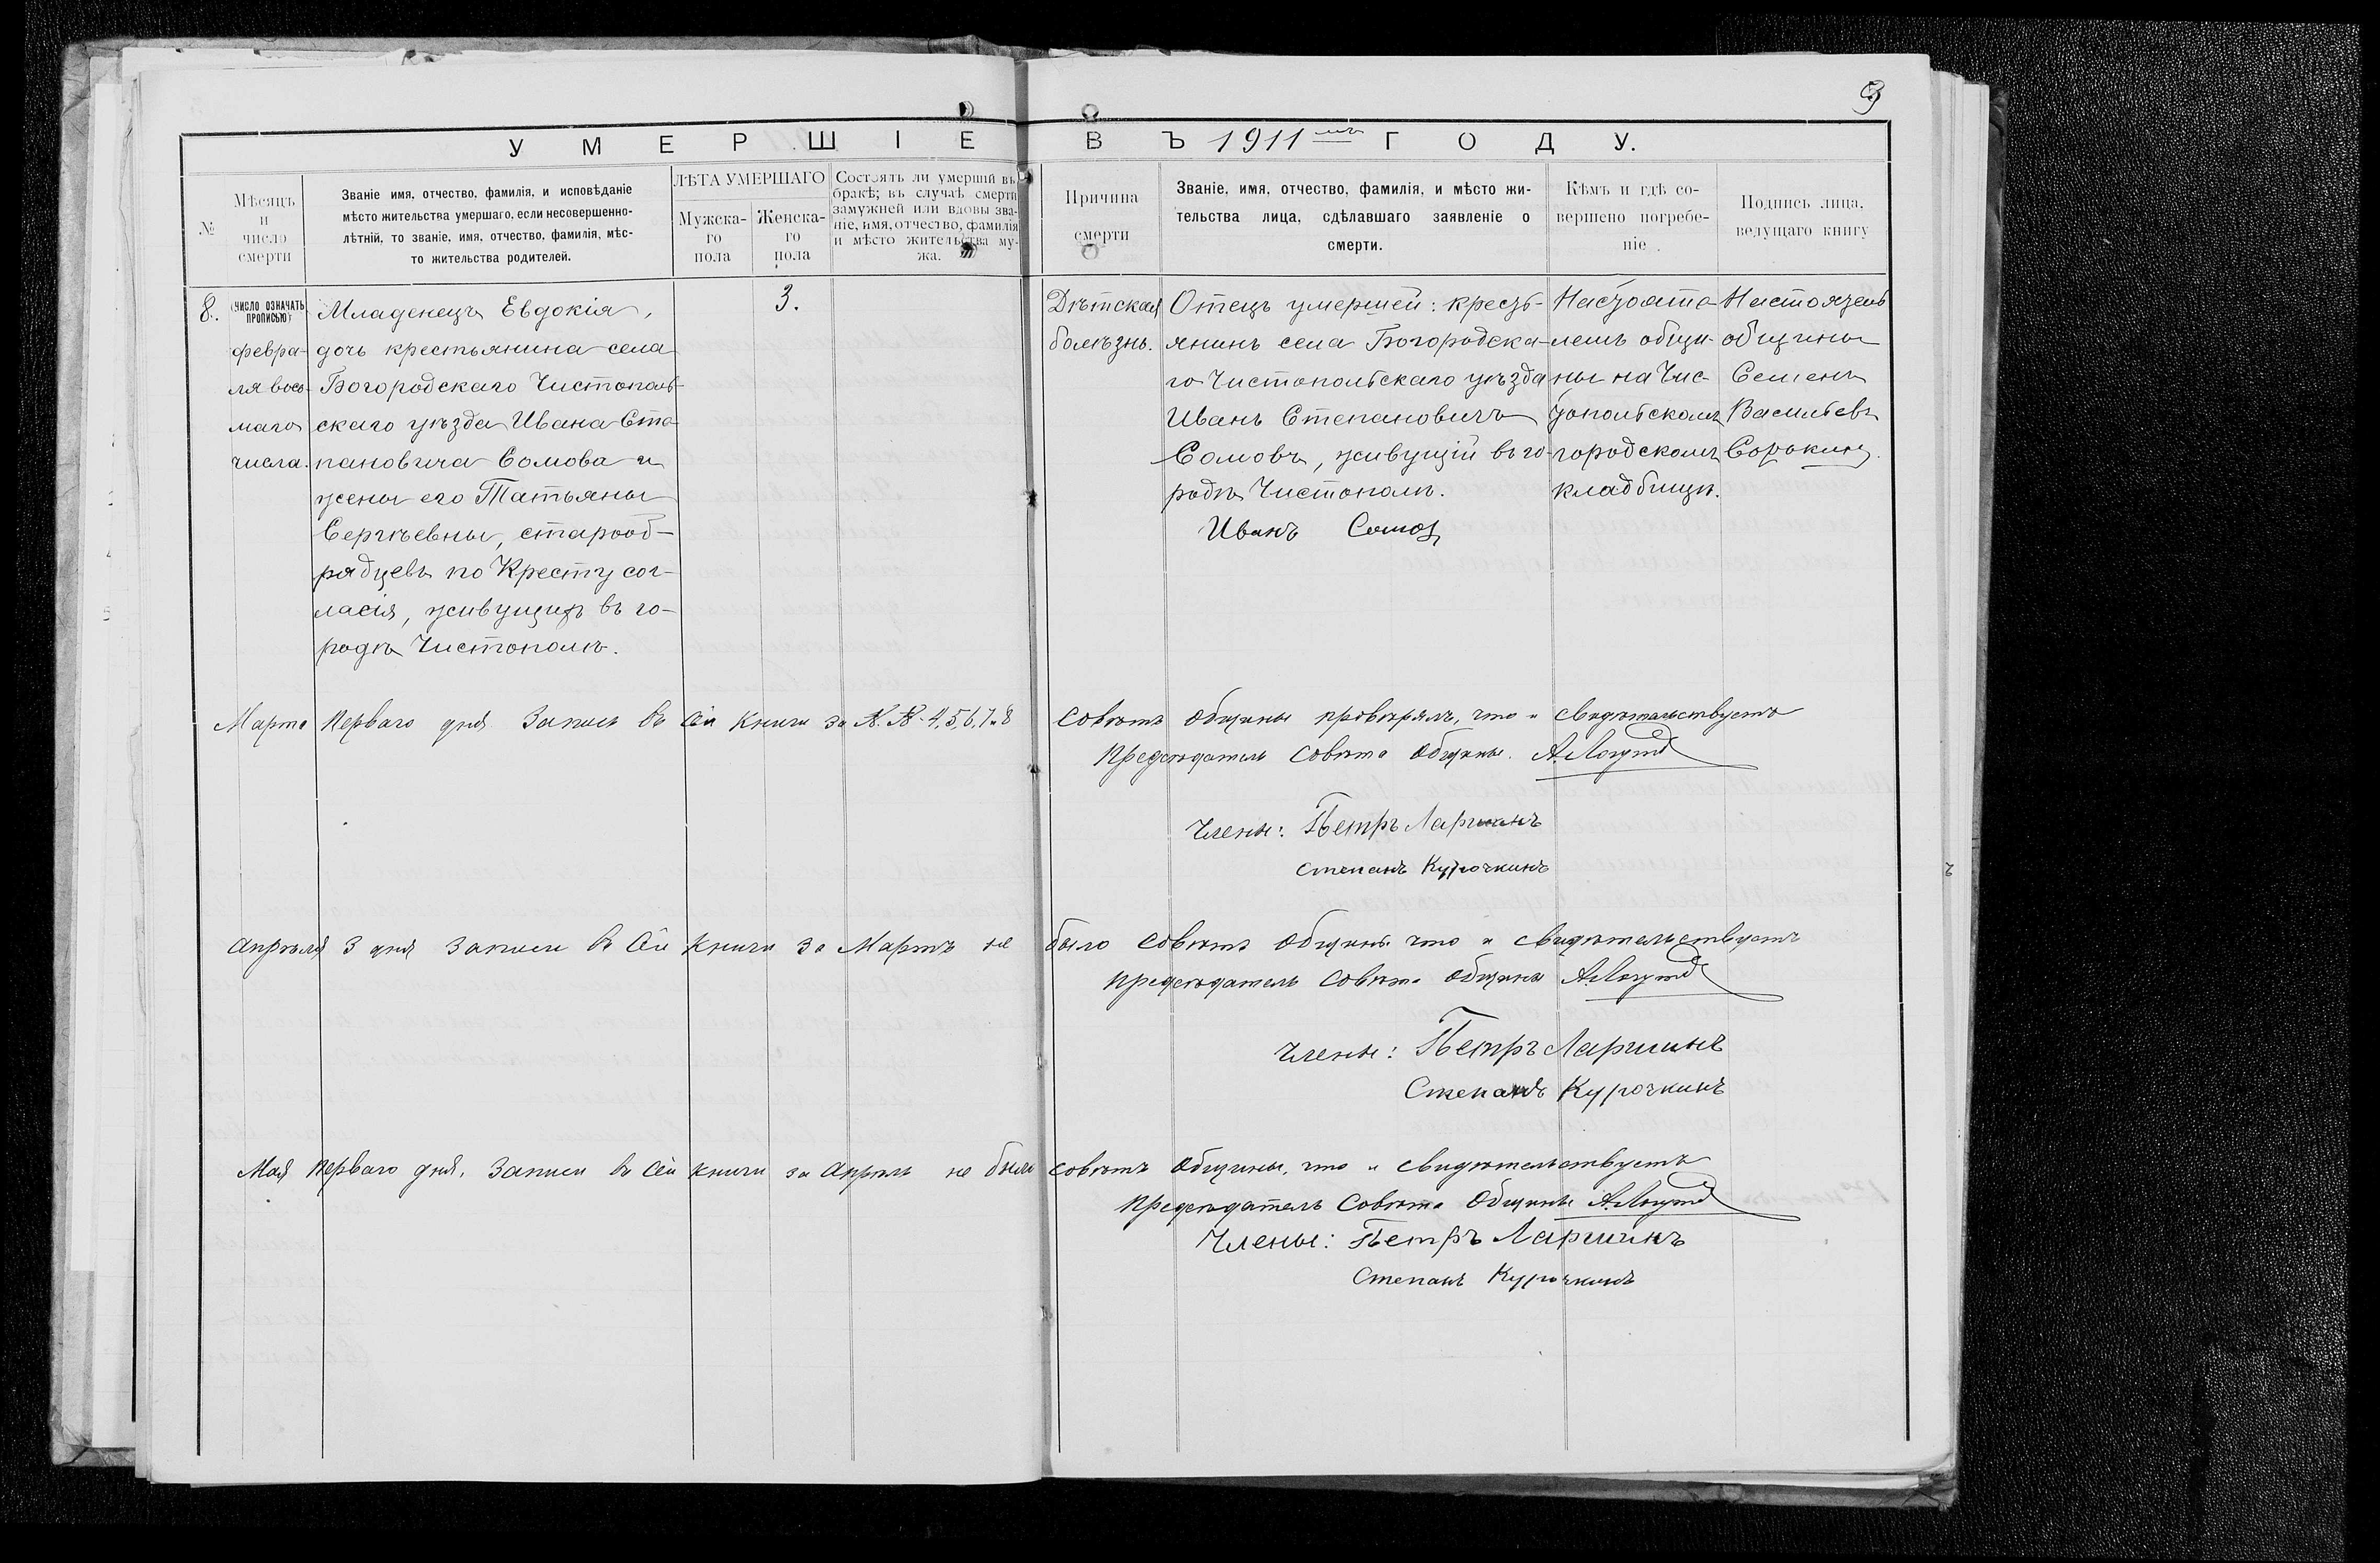 9
УМЕРШІЕ ВЪ 1911 мъ ГОДУ.
№
Мѣсяцъ
и
число
смерти
Званіе имя, отчество, фамилія, и исповѣданіе
мѣсто жительства умершаго, если несовершенно-
лѣтній, то званіе, имя, отчество, фамилія, мѣс-
то жительства родителей.
ЛѢТА УМЕРШАГО
Мужска-
го
пола
Женска-
го
пола
Состоялъ ли умершій въ
бракѣ; въ случаѣ смерти
замужней или вдовы зва-
ніе, имя, отчество, фамилія
и мѣсто жительства му-
жа.
Причина
смерти
Званіе, имя, отчество, фамилія, и мѣсто жи-
тельства лица, сдѣлавшаго заявленіе о
смерти.
Кѣмъ и гдѣ со-
вершено погребе-
ніе.
Подпись лица,
ведущаго книгу
8.
(ЧИСЛО ОЗНАЧАТЬ
ПРОПИСЬЮ)
февра-
ля вось-
маго
числа.
Младенецъ Евдокія,
дочь крестьянина села
Богородскаго Чистополь-
скаго уѣзда Ивана Сте-
пановича Сомова и
жены его Татьяны
Сергѣевны, старооб-
рядцевъ по Кресту сог-
ласія, живущихъ въ го-
родѣ Чистополѣ.
3.
Дѣтская
болѣзнь.
Отецъ умершей: кресть-
янинъ села Богородска-
го Чистопольскаго уѣзда
Иванъ Степановичъ
Сомовъ, живущій въ го-
родѣ Чистополѣ.
Иванъ Сомовъ
Настояте-
лемъ общи-
ны на Чис-
топольскомъ
городскомъ
кладбищѣ.
Настоятель
общины
Семенъ
Васильевъ
Сорокинъ.
Марта Перваго дня Запись въ сей книги за №.№ 4,5,6,7 и 8 Совѣтъ Общины провѣрялъ, что и свидѣтельствуетъ
Предсѣдатель Совѣта Общины.
Члены: Петръ Ларшинъ
Степанъ Курочкинъ
Апрѣля 3 дня Записи въ сей книги за Мартъ не было Совѣтъ Общины что и свидѣтельствуетъ
Предсѣдатель Совѣта Общины
Члены: Петръ Ларшинъ
Степанъ Курочкинъ
Мая Перваго дня, Записи въ сей книги за Апрѣль не было Совѣтъ Общины, что и свидѣтельствуетъ
Предсѣдатель Совѣта Общины
Члены: Петръ Ларшинъ
Степанъ Курочкинъ